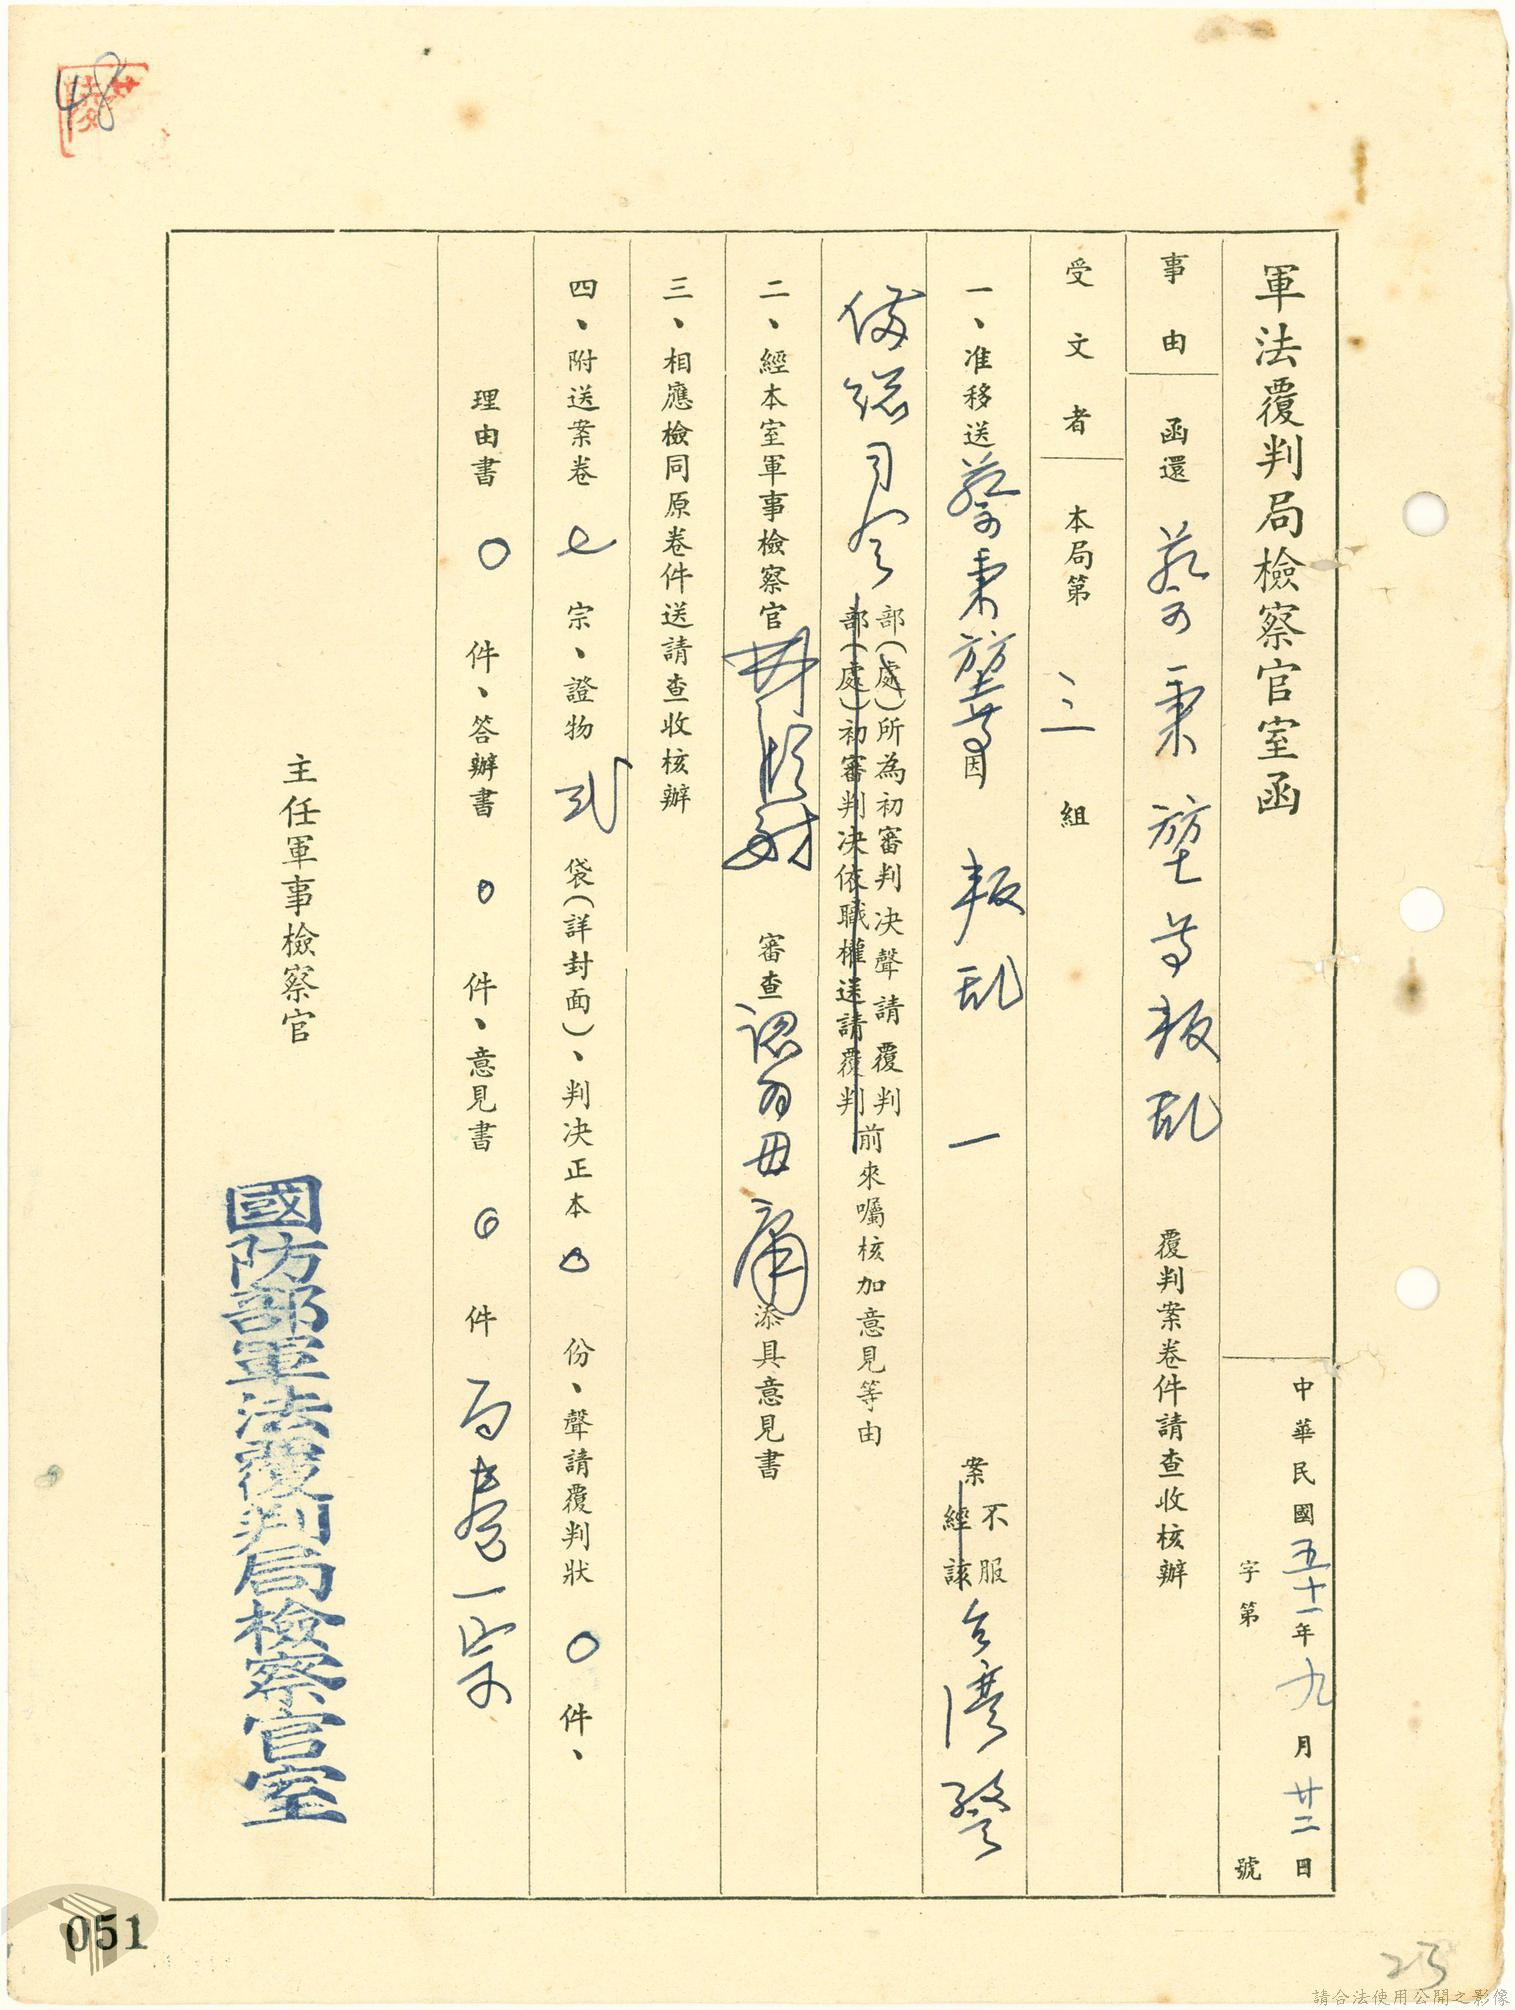 軍法覆判局檢察官室函
中華民國五十一年九月廿二日
字第 號
事由 函還 蔡秉堃等叛乱 覆判案卷件請查收核辦
受文者 本局第 三 組
一、准移送蔡秉堃等因 叛乱 一 案不服 經該 台灣警
備總司令 部(處)所為初審判決聲請覆判 部(處)初審判決依職權送請覆判 前來囑核加意見等由
二、經本室軍事檢察官 審查認為毋庸添具意見書
三、相應檢同原卷件送請查收核辦
四、附送案卷 七 宗、證物 弍 袋(詳封面)、判決正本 0 份、聲請覆判狀 0 件、
理由書 0 件、答辯書 0 件、意見書 0 件 局卷一宗
主任軍事檢察官
國防部軍法覆判局檢察官室
48
051
23
請合法使用公開之影像